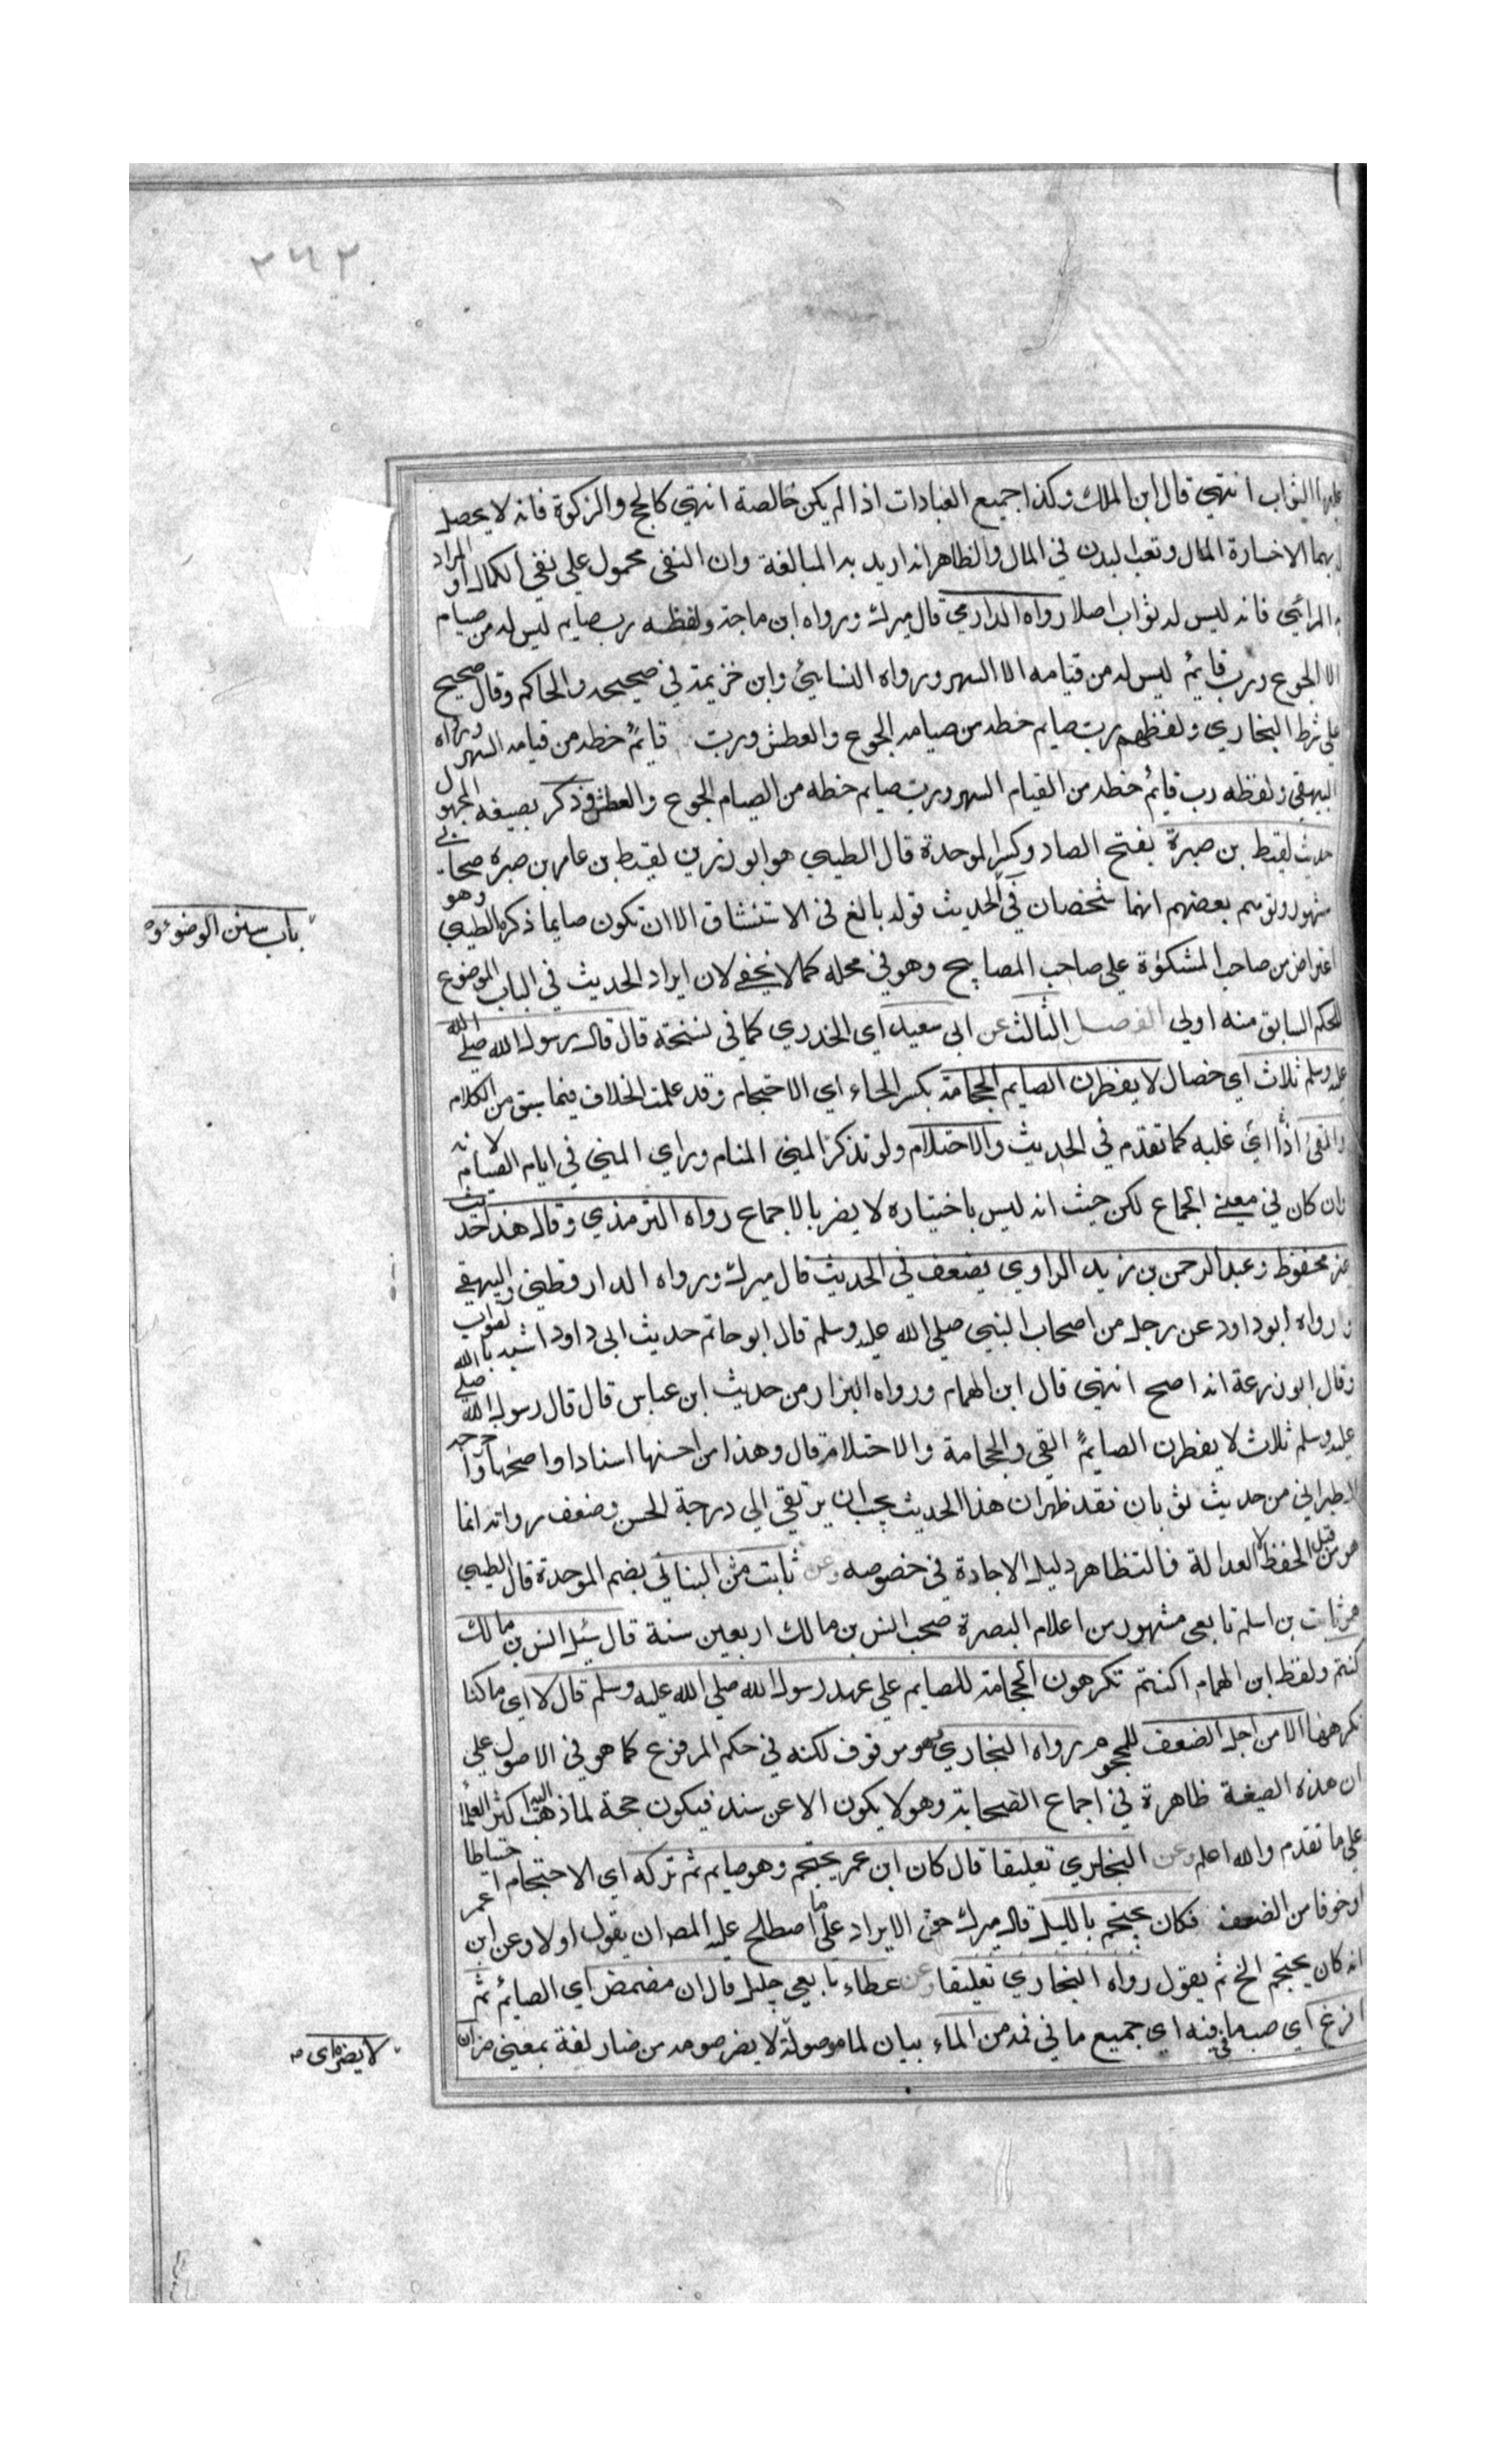 ٢٦٢
عليها الثواب انتهي قال ابن الملك وكذا جميع العبادات اذا لم يكن خالصة انتهي كالحج والزكوة فانه لا يحصل
بهما الا خسارة المال وتعب البدن في المال والظاهر انه اريد به المبالغة وان النفي محمول علي نفي الكمال او المراد
به المرائي فانه ليس له ثواب اصلا رواه الدارمي قال ميرك ورواه ابن ماجة ولفظه رب صايم ليس له من صيام
الا الجوع ورب قايم ليس له من قيامه الا السهر ورواه النسايي وابن خزيمة في صحيحه والحاكم وقال صحيح
علي شرط البخاري ولفظهم رب صايم حظه من صيامه الجوع والعطش ورب قايم حظه من قيامه السهر ورواه
البيهقي ولفظه رب قائم حظه من القيام السهر ورب صايم حظه من الصيام الجوع والعطش وذكر بصيغه المجهول
حديث لقيط بن صبرة بفتح الصاد وكسر الموحدة قال الطيبي هو ابو رزين لقيط بن عامر بن صبره صحابي
مشهور وتوهم بعضهم انهما شخصان في الحديث قوله بالغ في الاستنشاق الا ان تكون صايما ذكره الطيبي وهو
باب سنن الوضوء
اعتراض من صاحب المشكوة علي صاحب المصابيح وهو في محله كما لا يخفي لان ايراد الحديث في الباب الموضوع
للحكم السابق منه اولي الفصل الثالث عن ابي سعيد اي الخدري كما في نسخة قال قال رسول الله صلي الله
عليه وسلم ثلاث اي خصال لا يفطرن الصايم الحجامة بكسر الحاء اي الاحتجام وقد علمت الخلاف فيما سبق من الكلام
والقئ اذا اي غلبه كما تقدم في الحديث والاحتلام ولو تذكر المني المنام وراي المني في ايام الصيام لانه
وان كان في معني الجماع لكن حيث انه ليس باختياره لا يضر بالاجماع رواه الترمذي وقال هذا حديث
غير محفوظ وعبد الرحمن بن زيد الراوي يضعف في الحديث قال ميرك ورواه الدارقطني والبيهقي
ورواه ابو داود عن رجل من اصحاب النبي صلي الله عليه وسلم قال ابو حاتم حديث ابي داود اشبه بالصواب
وقال ابو زرعة انه اصح انتهي قال ابن الهمام ورواه البزار من حديث ابن عباس قال قال رسول الله صلي الله
عليه وسلم ثلاث لا يفطرن الصايم القي والحجامة والاحتلام قال وهذا من احسنها اسنادا واصحها واخرجه
الطبراني من حديث ثوبان فقد ظهر ان هذا الحديث يجب ان يرتقي الي درجة الحسن وضعف رواته انما
هو من قبل الحفظ لا العدالة فالتظاهر دليل الاجادة في خصوصه وعن ثابت البناني بضم الموحدة قال الطيبي
هو ثابت بن اسلم تابعي مشهور من اعلام البصرة صحب انس بن مالك اربعين سنة قال سئل انس بن مالك
كنتم ولفظ ابن الهمام اكنتم تكرهون الحجامة للصايم علي عهد رسول الله صلي الله عليه وسلم قال لا اي ما كنا
نكرهها الا من اجل الضعف للمحجوم رواه البخاري وهو موقوف لكنه في حكم المرفوع كما هو في الاصول علي
ان هذه الصيغة ظاهرة في اجماع الصحابة وهو لا يكون الا عن سند فيكون حجة لما ذهب اليه اكثر العلماء
علي ما تقدم والله اعلم وعن البخاري تعليقا قال كان ابن عمر يحتجم وهو صايم ثم تركه اي الاحتجام احتياطا
او خوفا من الضعف فكان يحتجم بالليل قال ميرك حق الايراد علي ما اصطلح عليه المص ان يقول اولا وعن ابن عمر
انه كان يحتجم الخ ثم يقول رواه البخاري تعليقا وعن عطاء تابعي جليل قال ان مضمض اي الصائم ثم
افرغ اي صب ما في فيه اي جميع ما في فمه من الماء بيان لما موصولة لا يضر صومه من ضار لغة بمعني ضر ان
لا يضره اي